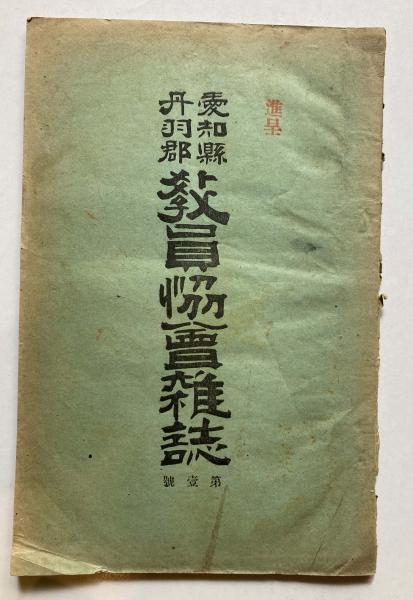 進呈
愛知縣
丹羽郡
教員恊會雑誌
第壹號